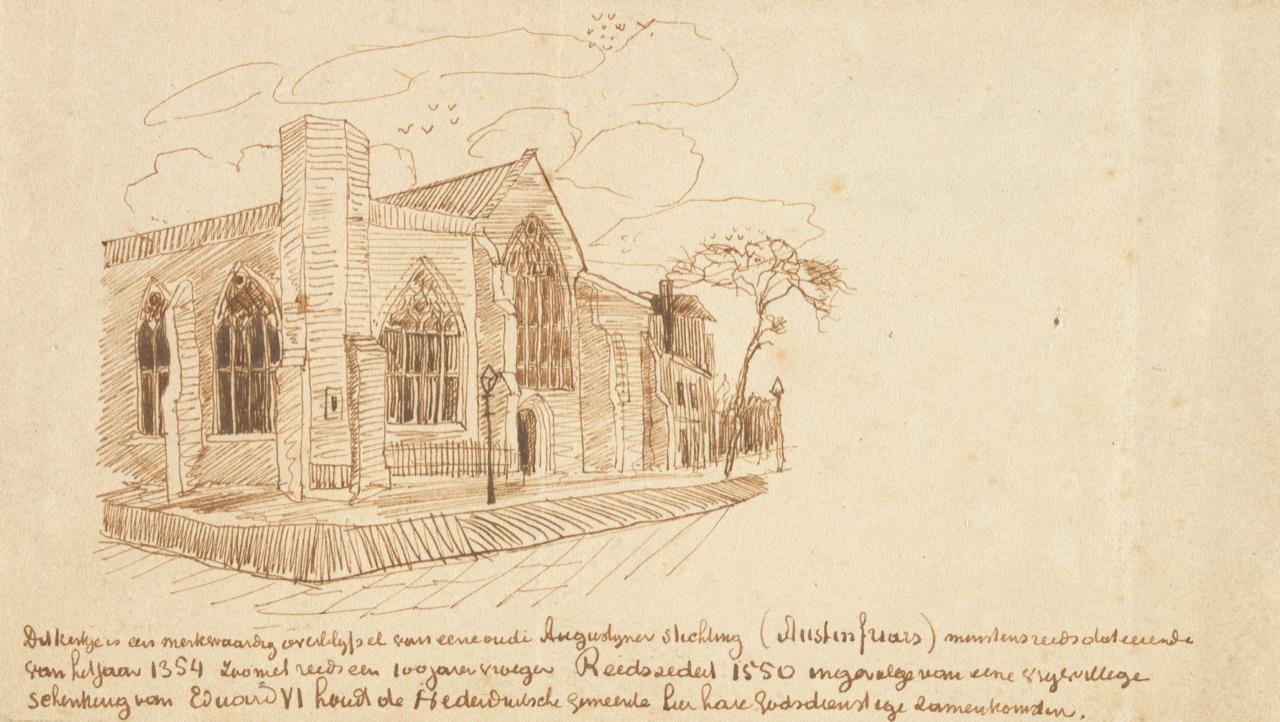 Dit kerkje is een merkwaardig overblijfsel van eene oude Augustyner stichting (Austin friars) minstens reeds dateerende
van het jaar 1354 zoo niet reeds een 100 jaren vroeger Reeds sedert 1550 ingevolge van eene vrywillege
schenking van Eduard VI houdt de Nederduitsche gemeente hier hare Godsdienstige zamenkomsten.